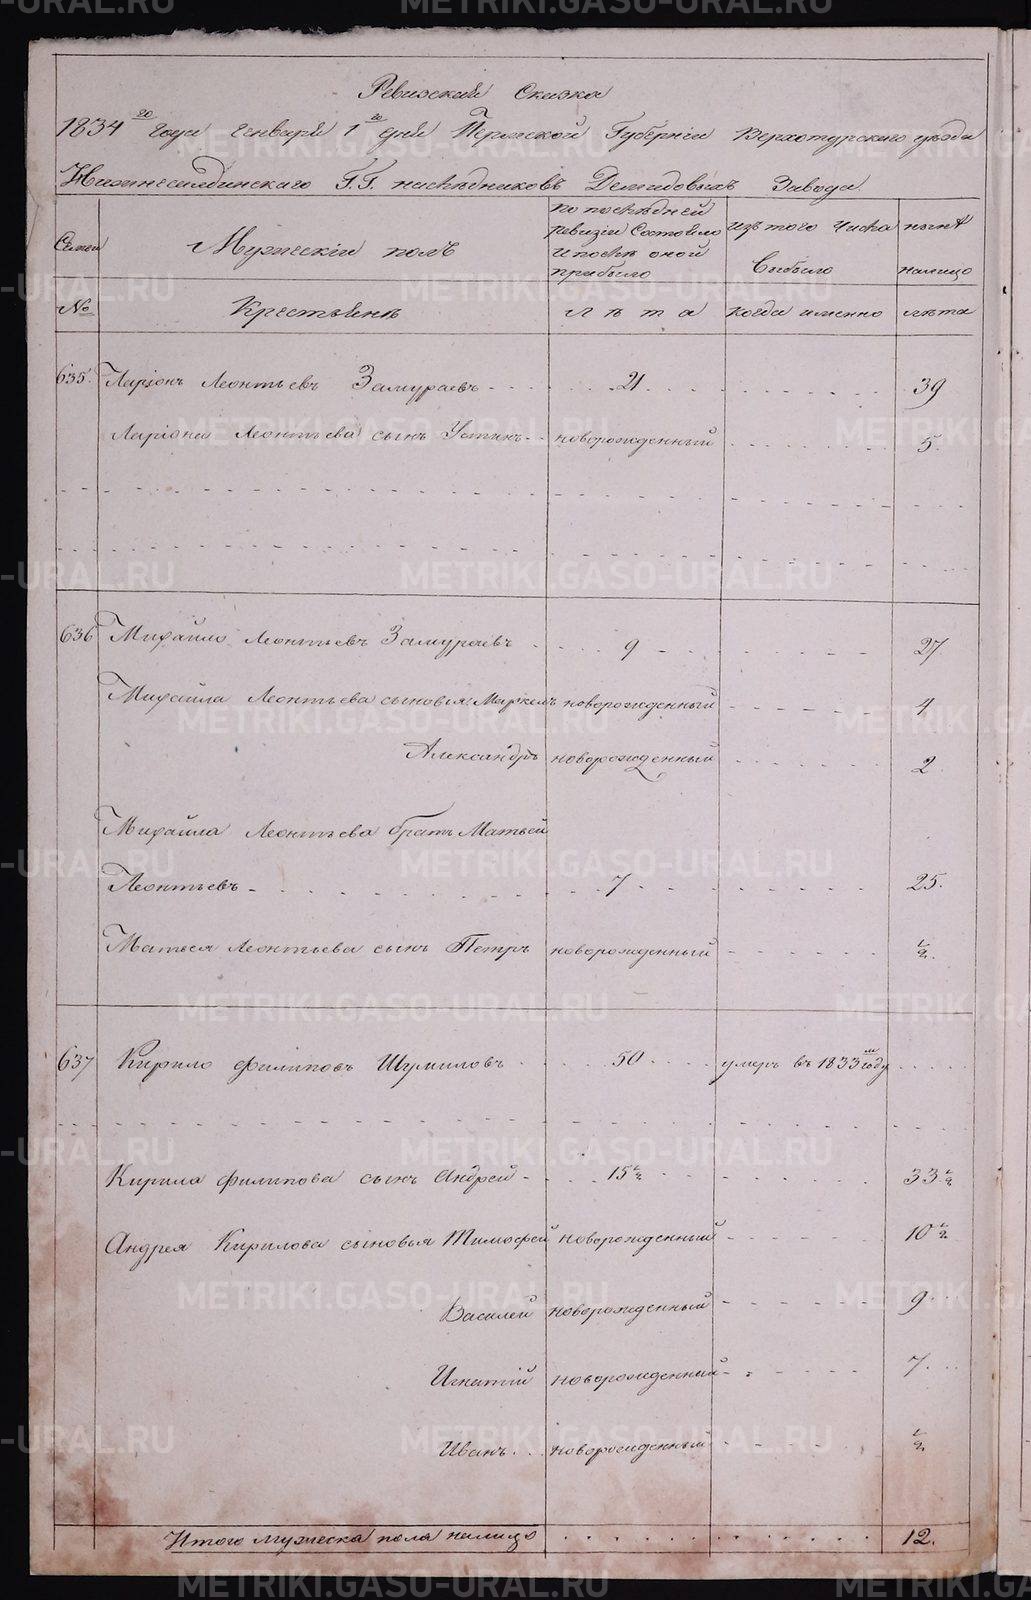 Ревизская Сказка
1834го года Генваря 1го дня Пермской Губернии Верхотурского уезда
Нижнесалдинскаго Г.Г. наслѣдниковъ Демидовыхъ Завода.
Семьи Мужескій полъ по послѣдней ревизіи Состояло и послѣ оной прибыло изъ того числа выбыло нынѣ налицо
№ Крестьянъ лѣта когда именно лѣта
635. Ларіонъ Леонтьевъ Замураевъ 21 39
Ларіона Леонтьева сынъ Устинъ новорожденный 5.
636 Михайло Леонтьевъ Замураевъ 9 27.
Михайла Леонтьева сыновья Маркелъ новорожденный 4
Александръ новорожденный 2
Михайла Леонтьева братъ Матвей
Леонтьевъ 7 25.
Матвея Леонтьева сынъ Петръ новорожденный 1/2.
637 Кирило Филиповъ Шумиловъ 50 умеръ въ 1833м году
Кирила Филипова сынъ Андрей 15 1/2 33 1/2
Андрея Кирилова сыновья Тимофей новорожденный 10 1/2
Василей новорожденный 9
Игнатій новорожденный 7.
Иванъ новорожденный 1/2
Итого мужеска пола налицо 12.
METRIKI.GASO-URAL.RU